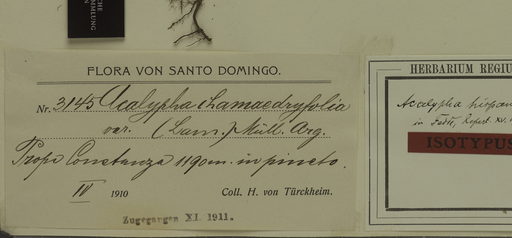 CHE
MMLUNG
FLORA VON SANTO DOMINGO.
Nr. 3145 Acalypha chamaedryfolia
var. (Lam.) Müll. Arg.
Prope Constanza 1190 m. in pineto.
IV 1910 Coll. H. von Türckheim.
Zugegangen XI. 1911.
HERBARIUM REGIU
Acalypha hispan
in Fedde, Repert. XV.
ISOTYPUS